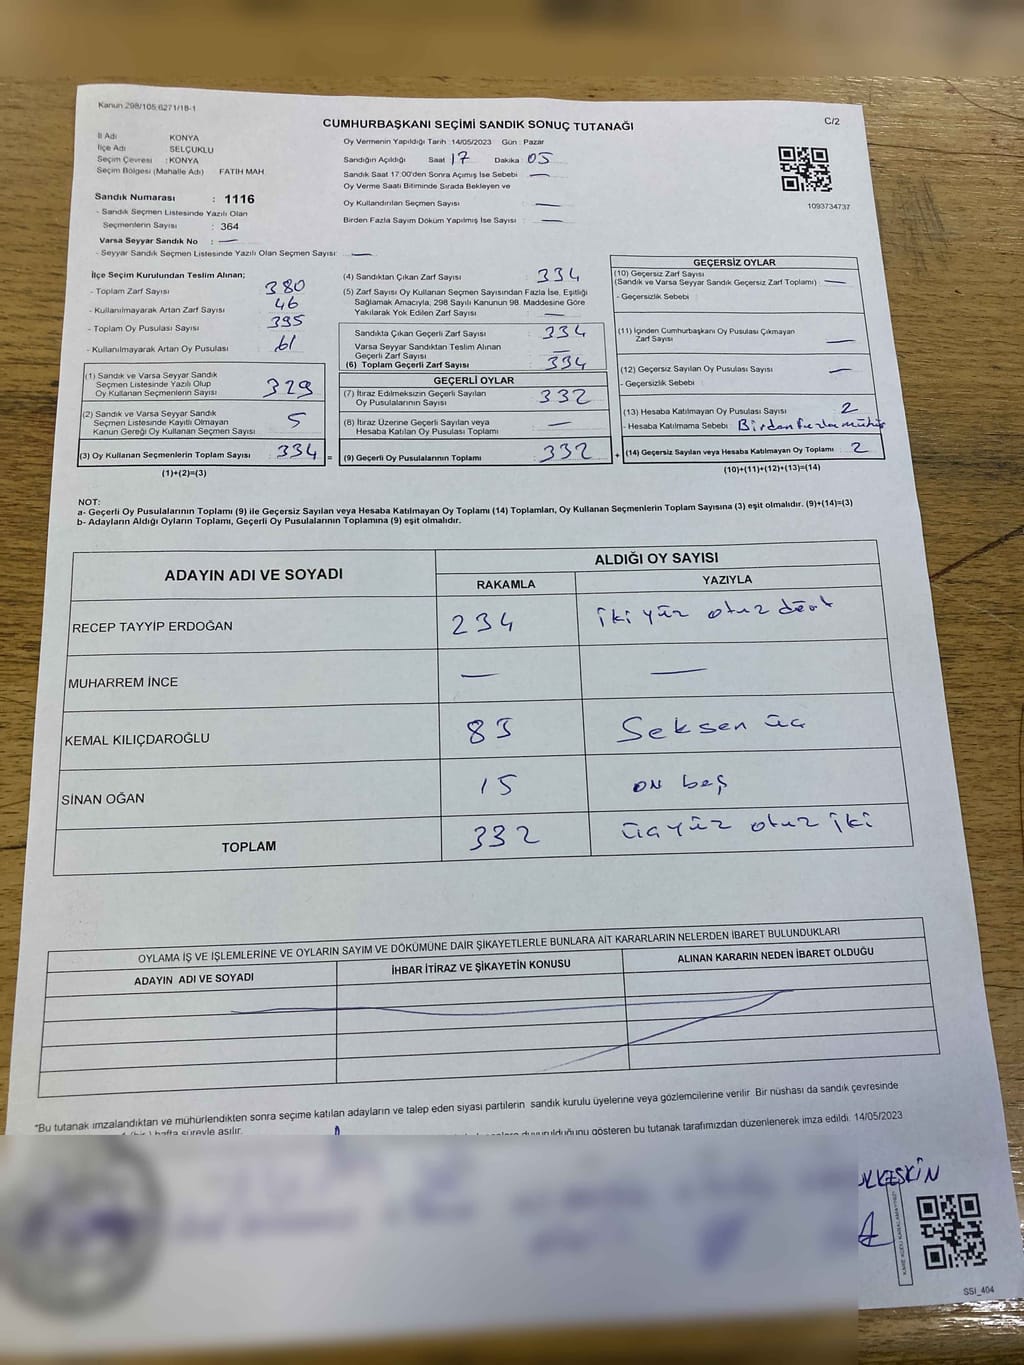 Kanun 298/105;6271/18-1
CUMHURBAŞKANI SEÇİMİ SANDIK SONUÇ TUTANAĞI
C/2
İl Adı KONYA
İlçe Adı SELÇUKLU
Seçim Çevresi : KONYA
Seçim Bölgesi (Mahalle Adı) FATİH MAH
Sandık Numarası : 1116
- Sandık Seçmen Listesinde Yazılı Olan
Seçmenlerin Sayısı : 364
Varsa Seyyar Sandık No : —
- Seyyar Sandık Seçmen Listesinde Yazılı Olan Seçmen Sayısı: —
Oy Vermenin Yapıldığı Tarih : 14/05/2023 Gün : Pazar
Sandığın Açıldığı Saat 17 Dakika 05
Sandık Saat 17:00'den Sonra Açımış İse Sebebi : —
Oy Verme Saati Bitiminde Sırada Bekleyen ve
Oy Kullandırılan Seçmen Sayısı : —
Birden Fazla Sayım Döküm Yapılmış İse Sayısı : —
1093734737
İlçe Seçim Kurulundan Teslim Alınan;
- Toplam Zarf Sayısı : 380
- Kullanılmayarak Artan Zarf Sayısı : 46
- Toplam Oy Pusulası Sayısı : 395
- Kullanılmayarak Artan Oy Pusulası : 61
(1) Sandık ve Varsa Seyyar Sandık
Seçmen Listesinde Yazılı Olup
Oy Kullanan Seçmenlerin Sayısı : 329
(2) Sandık ve Varsa Seyyar Sandık
Seçmen Listesinde Kayıtlı Olmayan
Kanun Gereği Oy Kullanan Seçmen Sayısı : 5
(3) Oy Kullanan Seçmenlerin Toplam Sayısı : 334 =
(1)+(2)=(3)
(4) Sandıktan Çıkan Zarf Sayısı : 334
(5) Zarf Sayısı Oy Kullanan Seçmen Sayısından Fazla İse, Eşitliği
Sağlamak Amacıyla, 298 Sayılı Kanunun 98. Maddesine Göre
Yakılarak Yok Edilen Zarf Sayısı : —
Sandıkta Çıkan Geçerli Zarf Sayısı : 334
Varsa Seyyar Sandıktan Teslim Alınan
Geçerli Zarf Sayısı : —
(6) Toplam Geçerli Zarf Sayısı : 334
GEÇERLİ OYLAR
(7) İtiraz Edilmeksizin Geçerli Sayılan
Oy Pusulalarının Sayısı : 332
(8) İtiraz Üzerine Geçerli Sayılan veya
Hesaba Katılan Oy Pusulası Toplamı : —
(9) Geçerli Oy Pusulalarının Toplamı : 332 +
GEÇERSİZ OYLAR
(10) Geçersiz Zarf Sayısı
(Sandık ve Varsa Seyyar Sandık Geçersiz Zarf Toplamı) : —
- Geçersizlik Sebebi :
(11) İçinden Cumhurbaşkanı Oy Pusulası Çıkmayan
Zarf Sayısı : —
(12) Geçersiz Sayılan Oy Pusulası Sayısı : —
- Geçersizlik Sebebi :
(13) Hesaba Katılmayan Oy Pusulası Sayısı : 2
- Hesaba Katılmama Sebebi : Birden fazla mühür
(14) Geçersiz Sayılan veya Hesaba Katılmayan Oy Toplamı : 2
(10)+(11)+(12)+(13)=(14)
NOT:
a- Geçerli Oy Pusulalarının Toplamı (9) ile Geçersiz Sayılan veya Hesaba Katılmayan Oy Toplamı (14) Toplamları, Oy Kullanan Seçmenlerin Toplam Sayısına (3) eşit olmalıdır. (9)+(14)=(3)
b- Adayların Aldığı Oyların Toplamı, Geçerli Oy Pusulalarının Toplamına (9) eşit olmalıdır.
ADAYIN ADI VE SOYADI
ALDIĞI OY SAYISI
RAKAMLA YAZIYLA
RECEP TAYYİP ERDOĞAN 234 iki yüz otuz dört
MUHARREM İNCE — —
KEMAL KILIÇDAROĞLU 83 Seksen üç
SİNAN OĞAN 15 on beş
TOPLAM 332 üçyüz otuz iki
OYLAMA İŞ VE İŞLEMLERİNE VE OYLARIN SAYIM VE DÖKÜMÜNE DAİR ŞİKAYETLERLE BUNLARA AİT KARARLARIN NELERDEN İBARET BULUNDUKLARI
ADAYIN ADI VE SOYADI İHBAR İTİRAZ VE ŞİKAYETİN KONUSU ALINAN KARARIN NEDEN İBARET OLDUĞU
"Bu tutanak imzalandıktan ve mühürlendikten sonra seçime katılan adayların ve talep eden siyasi partilerin sandık kurulu üyelerine veya gözlemcilerine verilir .Bir nüshası da sandık çevresinde
hafta süreyle asılır. duyurulduğunu gösteren bu tutanak tarafımızdan düzenlenerek imza edildi. 14/05/2023
SSI_404